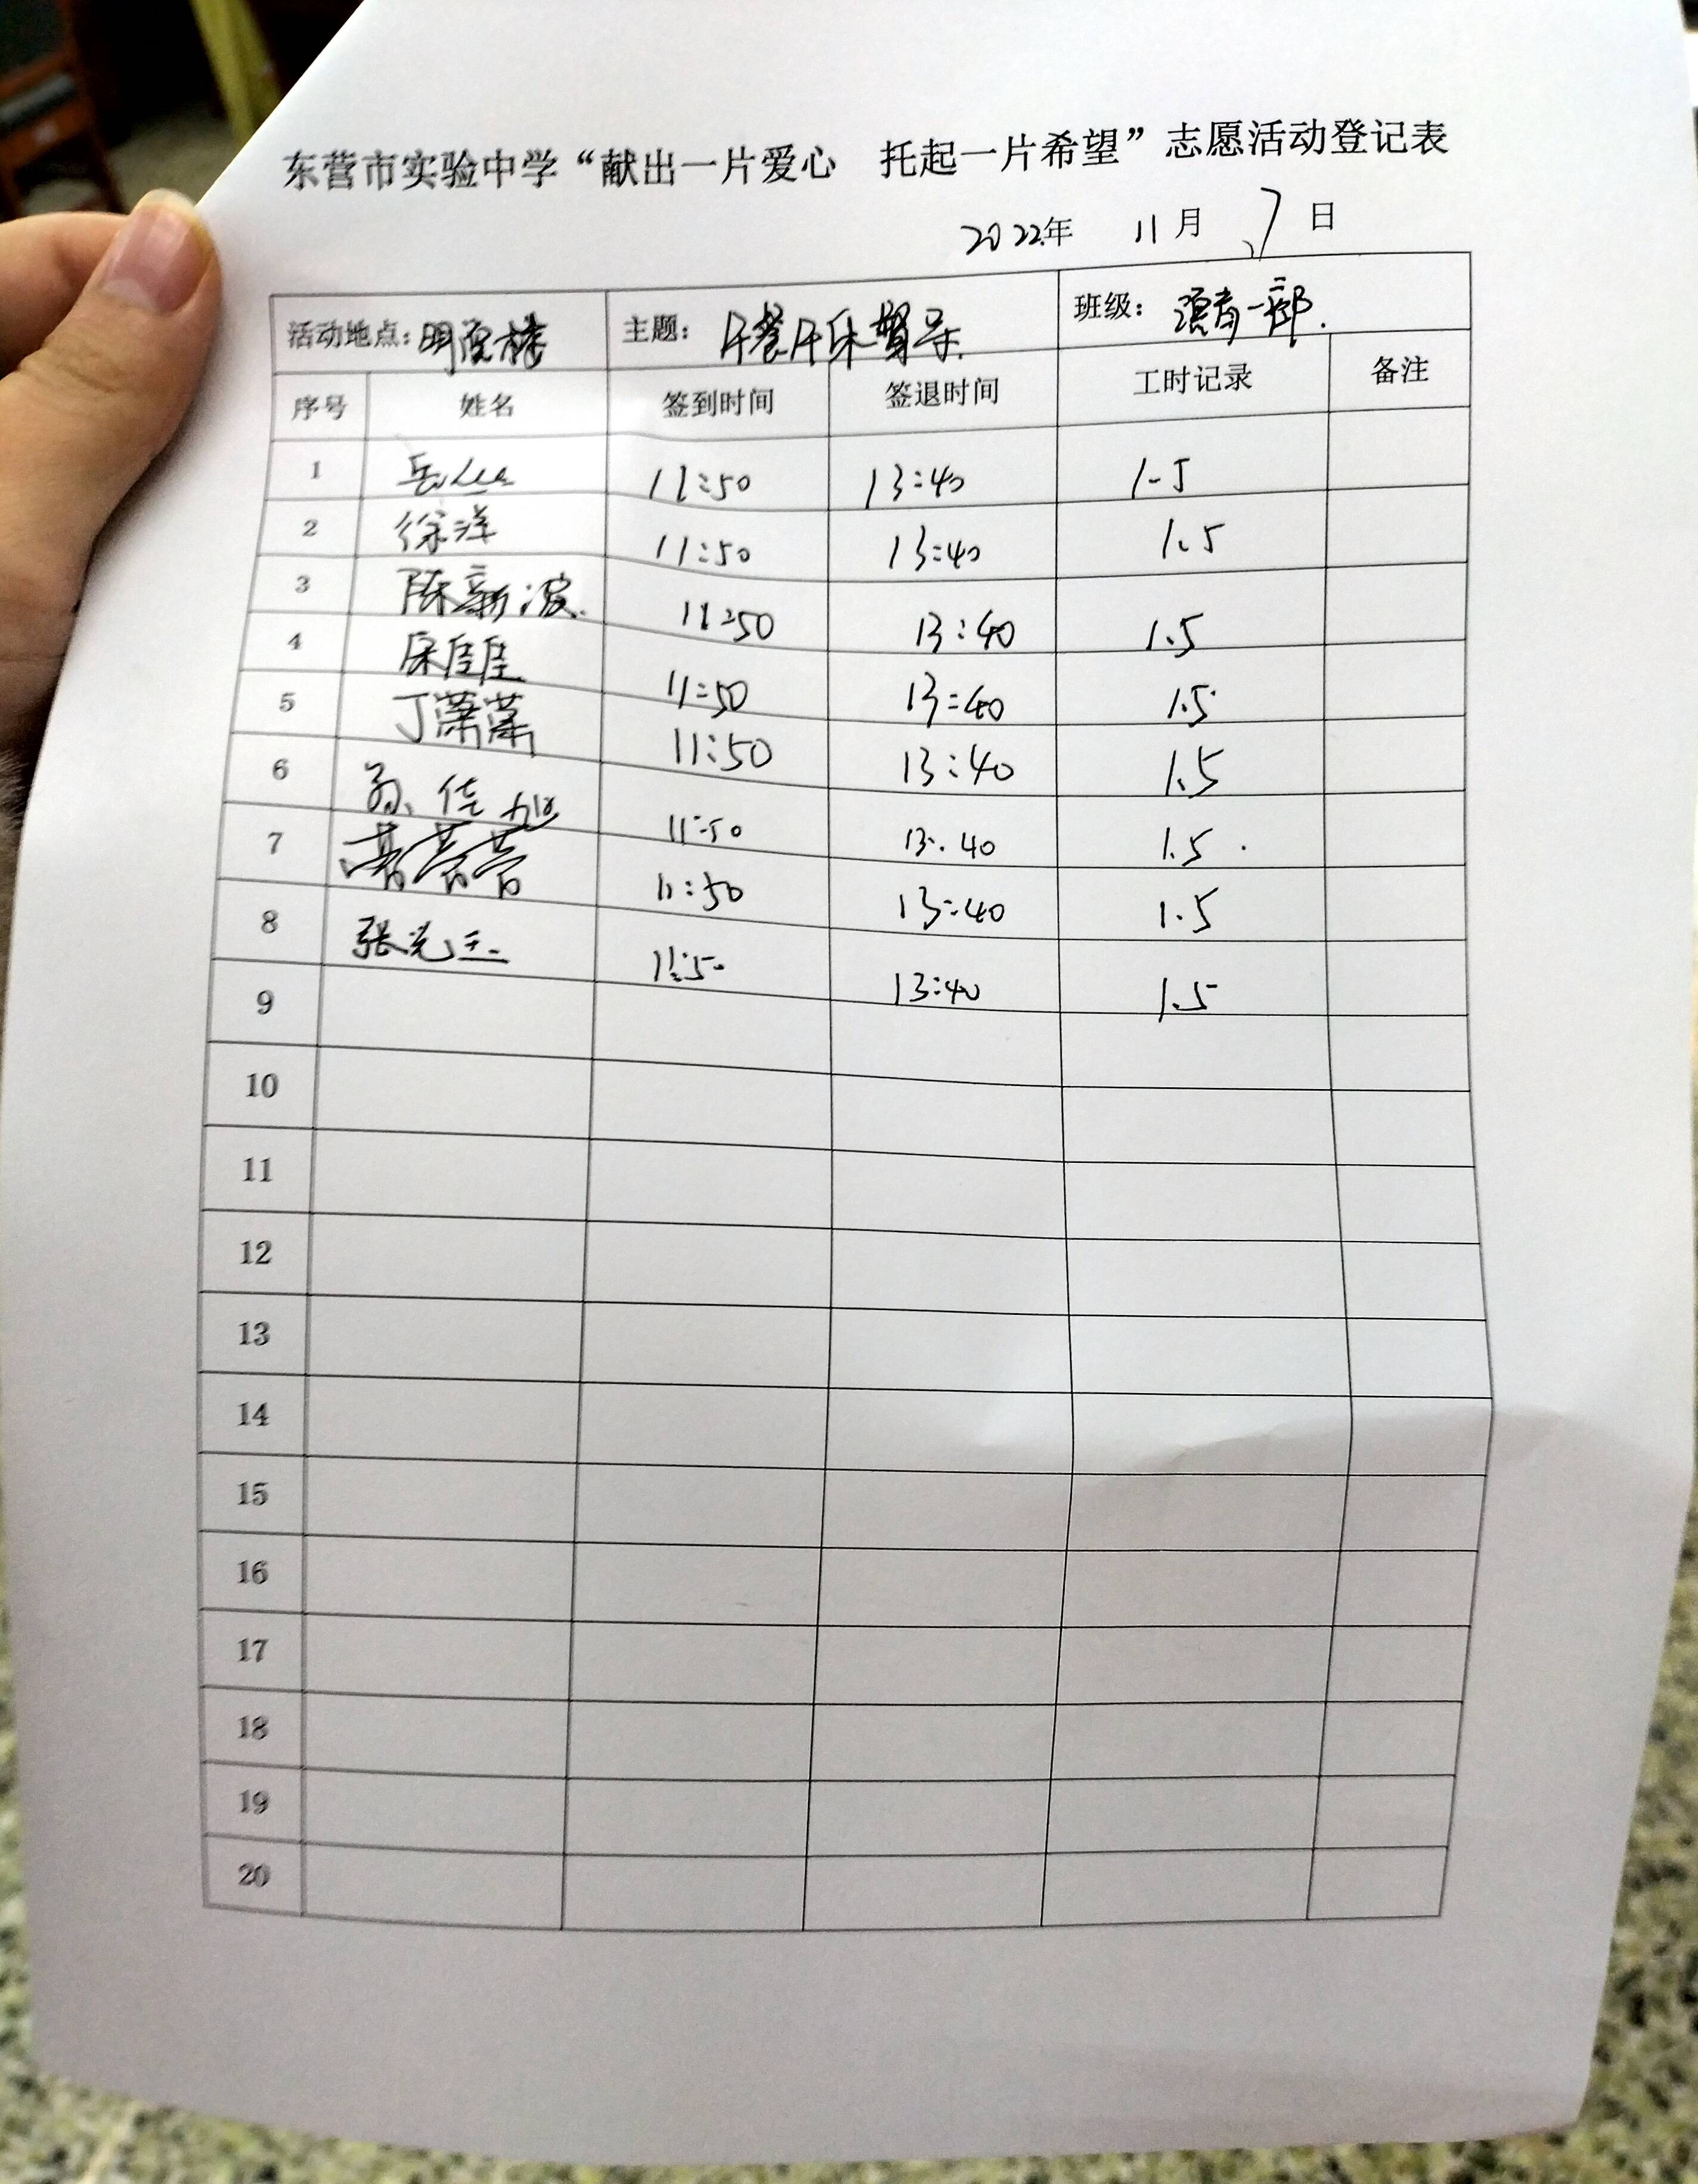 东营市实验中学“献出一片爱心 托起一片希望”志愿活动登记表
2022年 11月 7日
活动地点: 主题: 午餐午休 班级: 一部.
序号 姓名 签到时间 签退时间 工时记录 备注
1 岳 11:50 13:40 1.5
2 徐洋 11:50 13:40 1.5
3 陈新波. 11:50 13:40 1.5
4 佳佳 11:50 13:40 1.5
5 丁潇潇 11:50 13:40 1.5
6 孙佳 11:50 13:40 1.5
7 11:50 13:40 1.5
8 张光玉 11:50 13:40 1.5
9
10
11
12
13
14
15
16
17
18
19
20